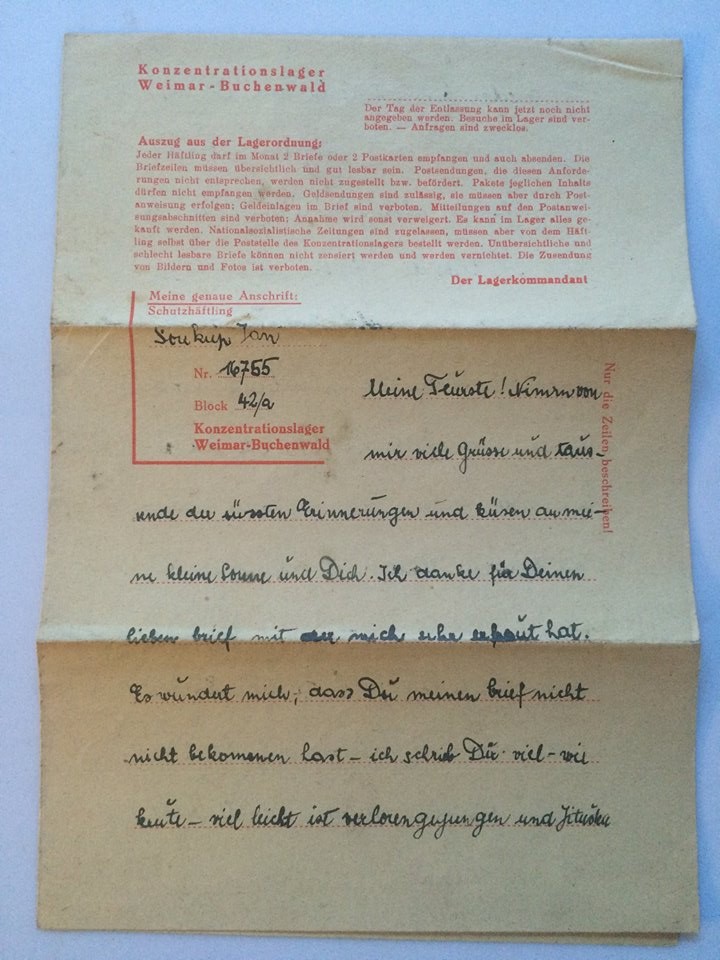 Konzentrationslager
Weimar-Buchenwald
Der Tag der Entlassung kann jetzt noch nicht
angegeben werden. Besuche im Lager sind ver-
boten. — Anfragen sind zwecklos.
Auszug aus der Lagerordnung:
Jeder Häftling darf im Monat 2 Briefe oder 2 Postkarten empfangen und auch absenden. Die
Briefzeilen müssen übersichtlich und gut lesbar sein. Postsendungen, die diesen Anforde-
rungen nicht entsprechen, werden nicht zugestellt bzw. befördert. Pakete jeglichen Inhalts
dürfen nicht empfangen werden. Geldsendungen sind zulässig, sie müssen aber durch Post-
anweisung erfolgen; Geldeinlagen im Brief sind verboten. Mitteilungen auf den Postanwei-
sungsabschnitten sind verboten; Annahme wird sonst verweigert. Es kann im Lager alles ge-
kauft werden. Nationalsozialistische Zeitungen sind zugelassen, müssen aber von dem Häft-
ling selbst über die Poststelle des Konzentrationslagers bestellt werden. Unübersichtliche und
schlecht lesbare Briefe können nicht zensiert werden und werden vernichtet. Die Zusendung
von Bildern und Fotos ist verboten.
Der Lagerkommandant
Meine genaue Anschrift:
Schutzhäftling
Soukup Jan
Nr. 16755
Block 42/a
Konzentrationslager
Weimar-Buchenwald
Nur die Zeilen beschreiben!
Meine Teurste! Nimm von
mir viele Grüsse und taus-
ende der süssten Erinnerungen und küsen an mei-
ne kleine Sonne und Dich. Ich danke für Deinen
lieben brief mit der mich sehr erfreut hat.
Es wundert mich, dass Du meinen brief nicht
nicht bekommen hast – ich schrieb Dir viel – wie
heute – viel leicht ist verlorengegangen und Jituška